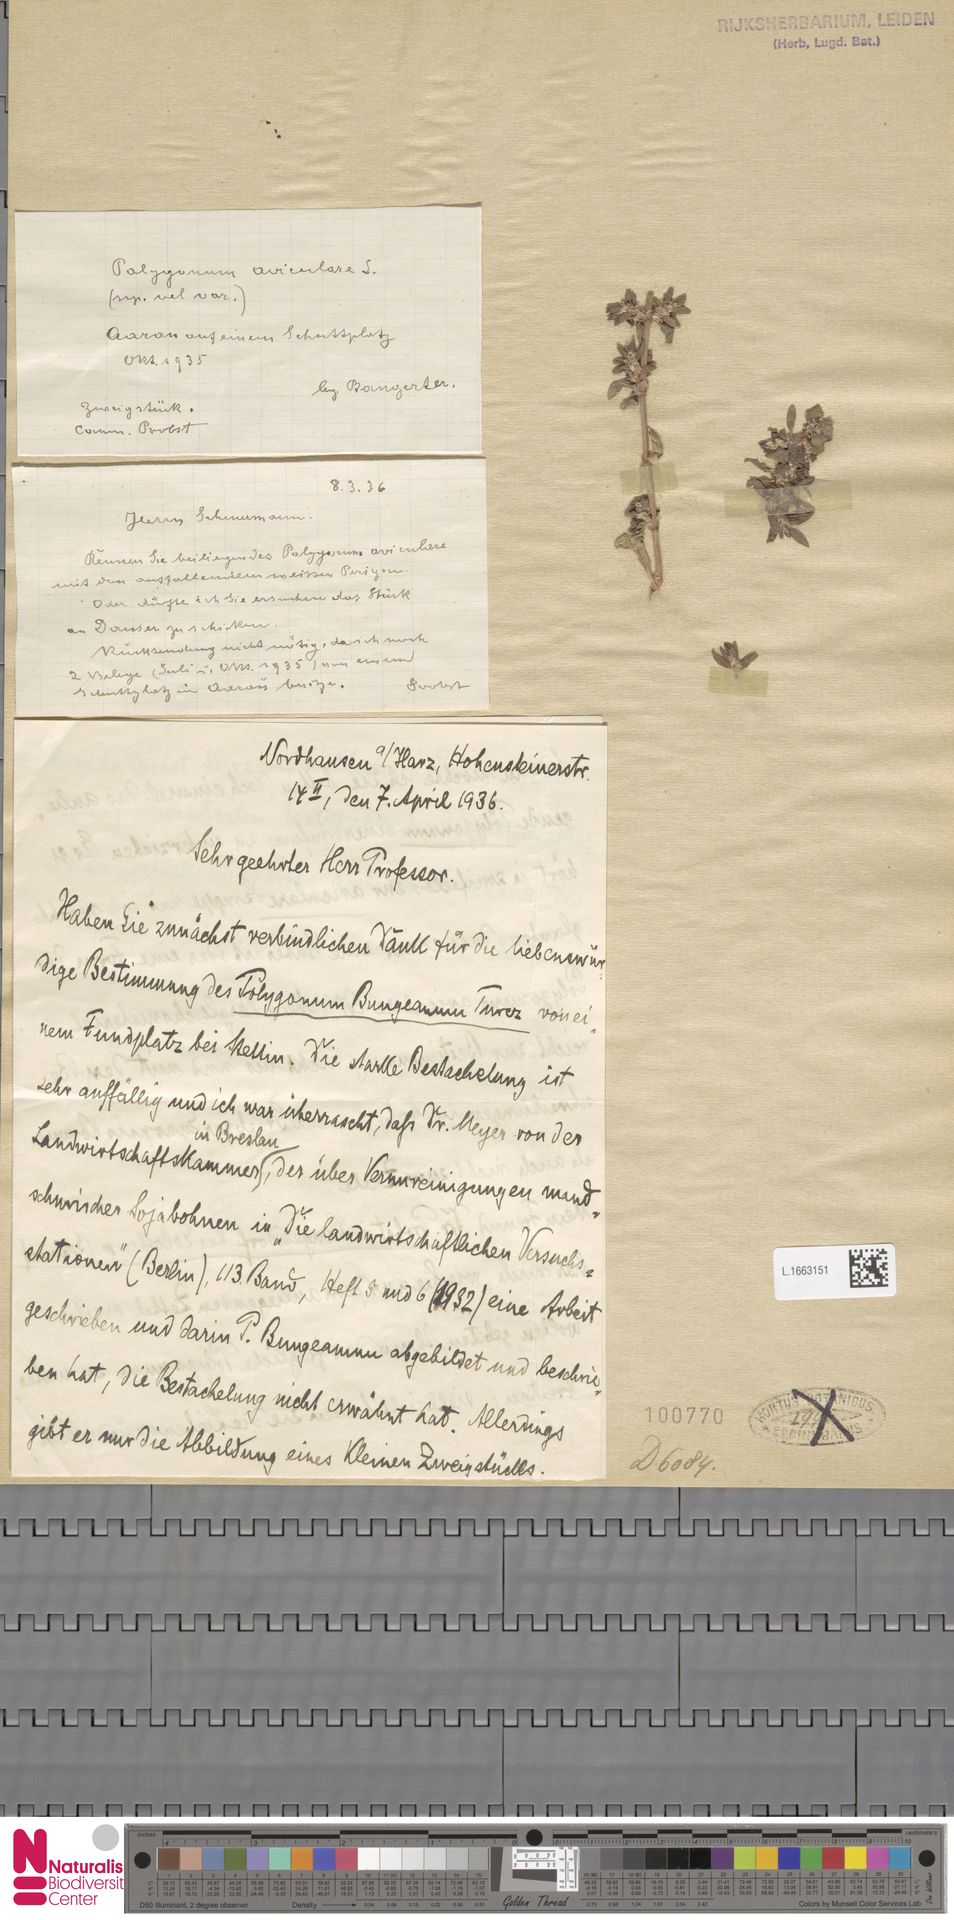 RIJKSHERBARIUM, LEIDEN
(Herb. Lugd. Bat.)
Polygonum aviculare L.
(ssp. vel var.)
Aarau auf einem Schuttplatz
Okt. 1935
leg. Bangerter.
Zweigstück.
comm. Probst
8.3.36
Herrn Scheuermann.
Kennen Sie beiliegendes Polygonum aviculare
mit dem auffallendem weissen Perigon.
Oder dürfte ich Sie ersuchen das Stück
an Danser zu schicken.
Rücksendung nicht nötig, da ich noch
2 Belege (Juli u. Okt. 1935) von einem
Schuttplatz in Aarau besitze. Probst
Nordhausen a/Harz, Hohensteinerstr.
14 II, den 7. April 1936.
Sehr geehrter Herr Professor.
Haben Sie zunächst verbindlichen Dank für die liebenswür-
dige Bestimmung des Polygonum Bungeanum Turcz von ei-
nem Fundplatz bei Stettin. Die starke Bestachelung ist
sehr auffällig und ich war überrascht, daß Dr. Meyer von der
in Breslau
Landwirtschaftskammer, der über Verunreinigungen mand-
schurischer Sojabohnen in „Die landwirtschaftlichen Versuchs-
stationen" (Berlin), 113. Band, Heft 5 und 6 (1932) eine Arbeit
geschrieben und darin P. Bungeanum abgebildet und beschrie-
ben hat, die Bestachelung nicht erwähnt hat. Allerdings
gibt er nur die Abbildung eines kleinen Zweigstücks.
L.1663151
100770
HORTUS BOTANICUS
D6084.
Naturalis
Biodiversity
Center
inches
centimeters
D50 Illuminant, 2 degree observer
Density
Golden Thread
Colors by Munsell Color Services Lab